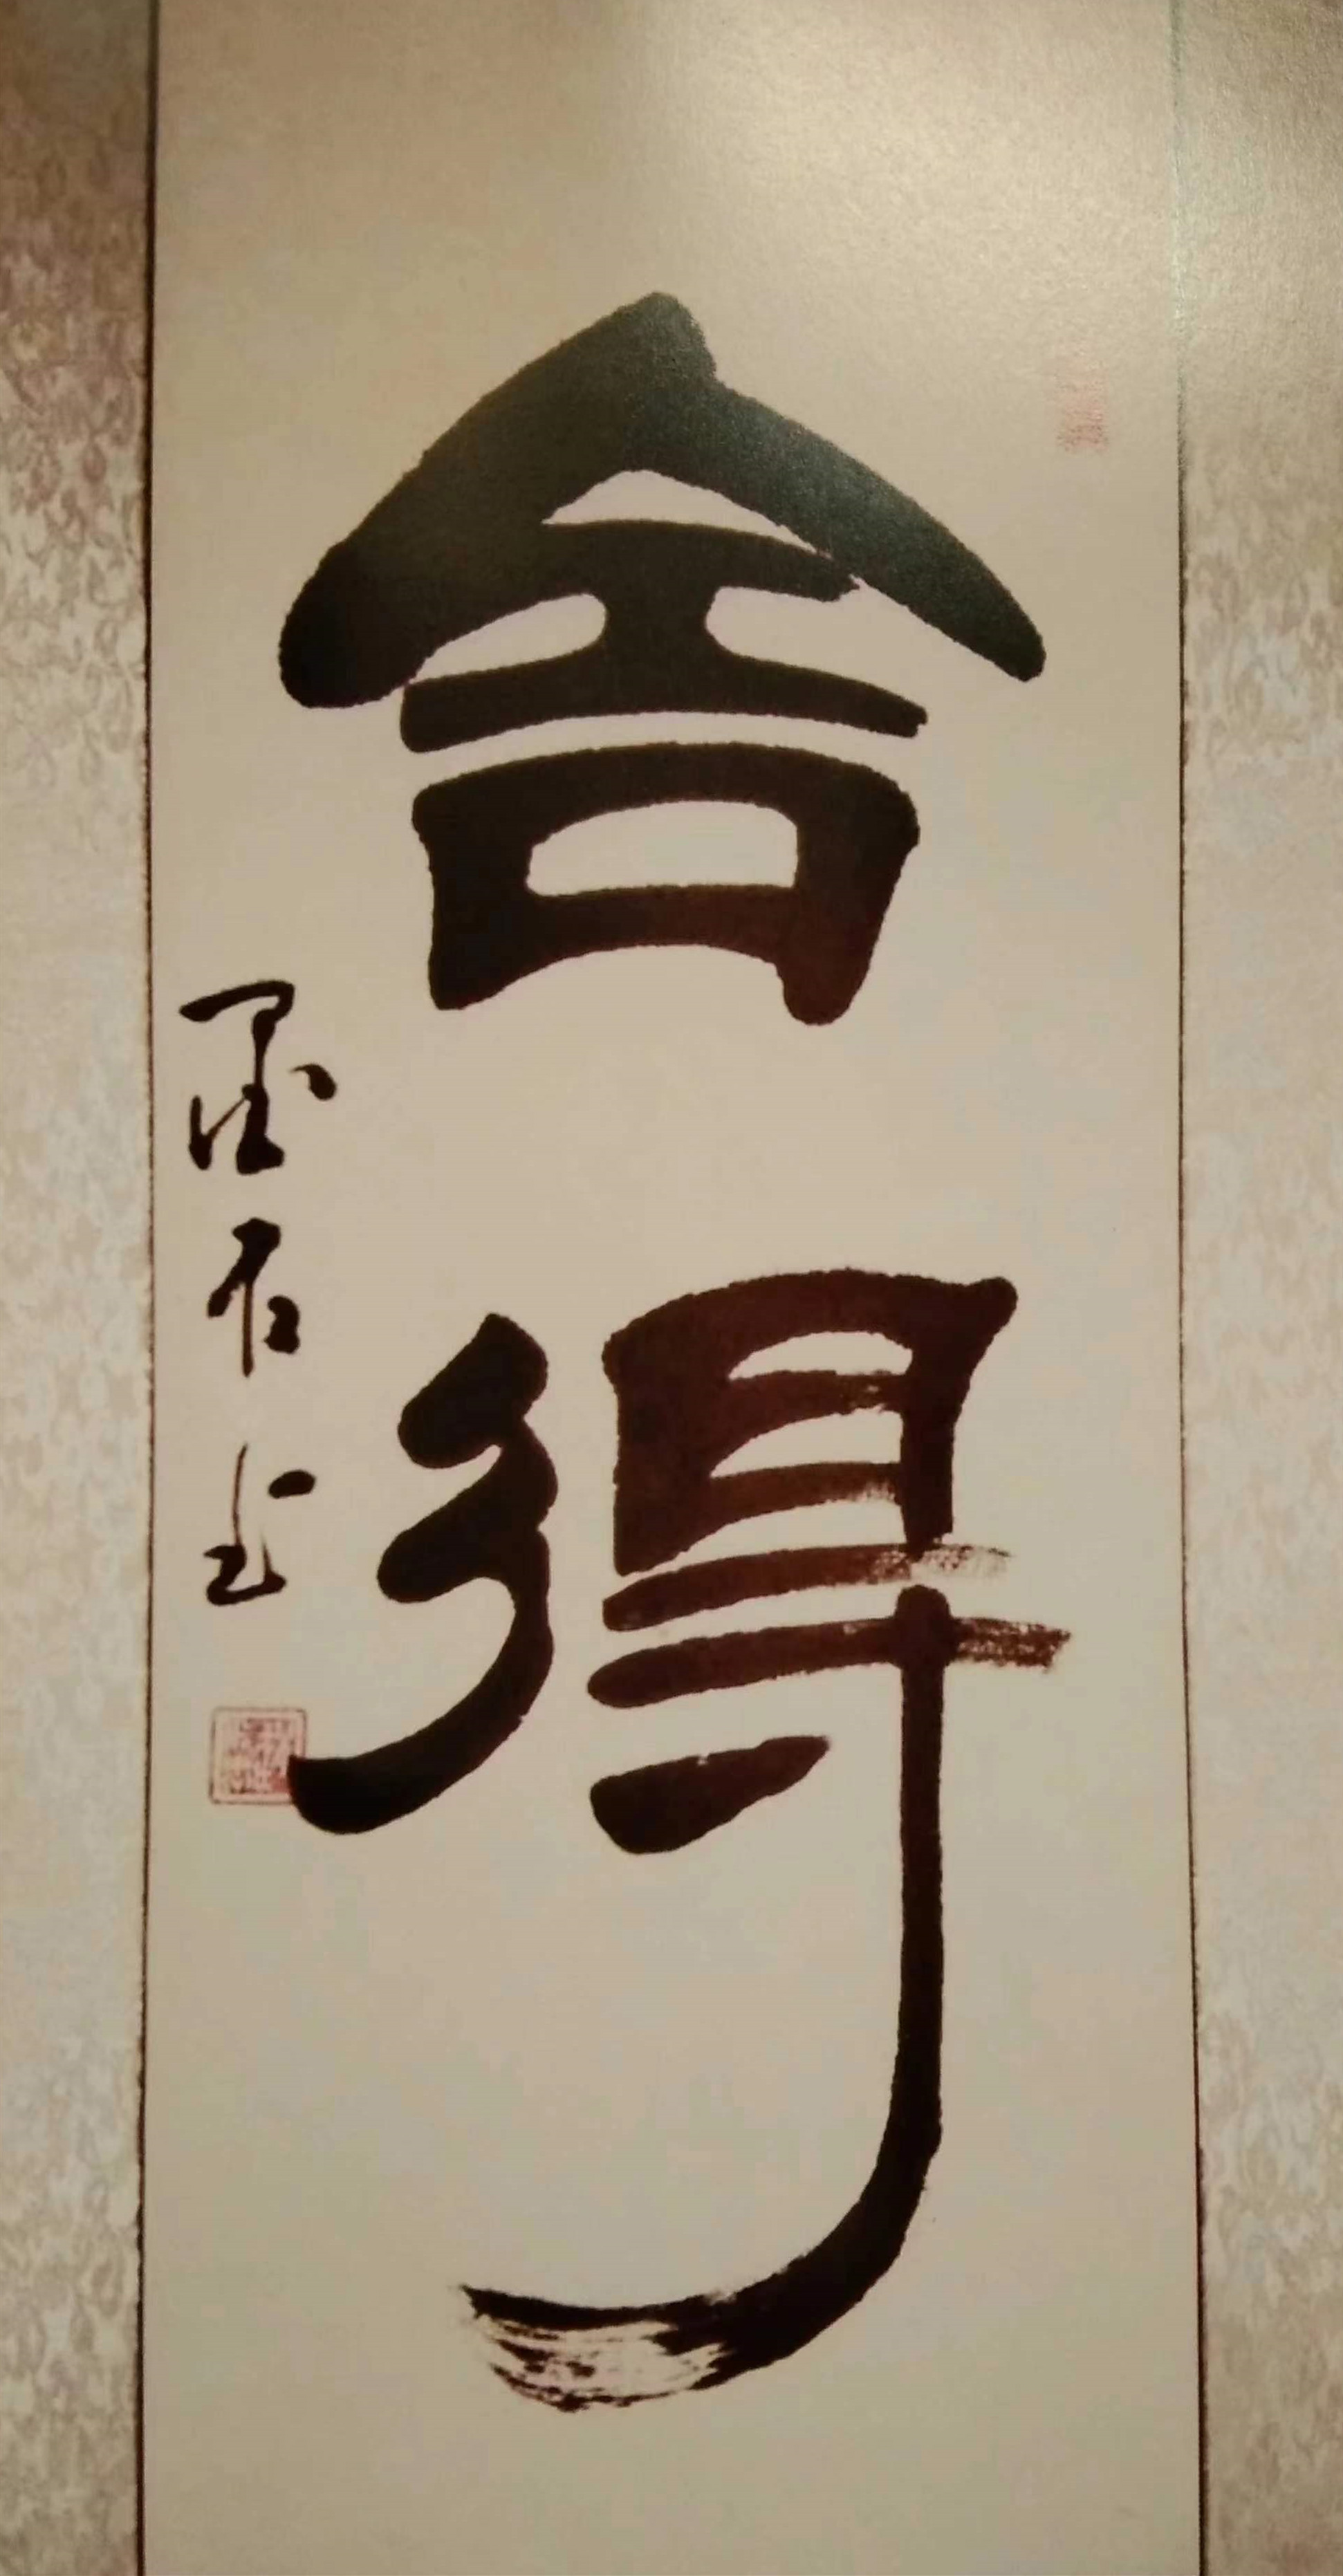 舍得
墨石书